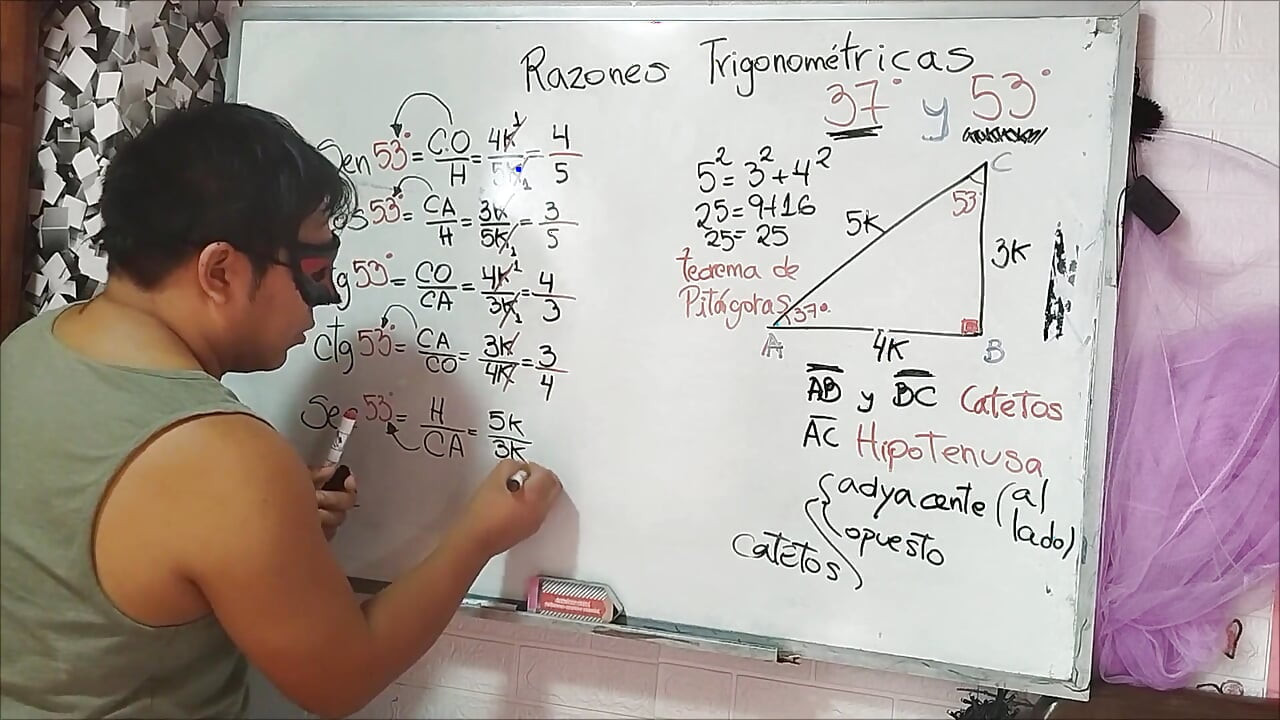 Razones Trigonométricas
37° y 53°
Sen 53° = CO/H = 4K/5K = 4/5
os 53° = CA/H = 3K/5K = 3/5
g 53° = CO/CA = 4K/3K = 4/3
Ctg 53° = CA/CO = 3K/4K = 3/4
Sec 53° = H/CA = 5K/3K
5² = 3² + 4²
25 = 9+16
25 = 25
teorema de
Pitágoras
C
53°
5K
3K
37°
A
4K
B
AB y BC Catetos
AC Hipotenusa
Catetos
adyacente (al lado)
opuesto